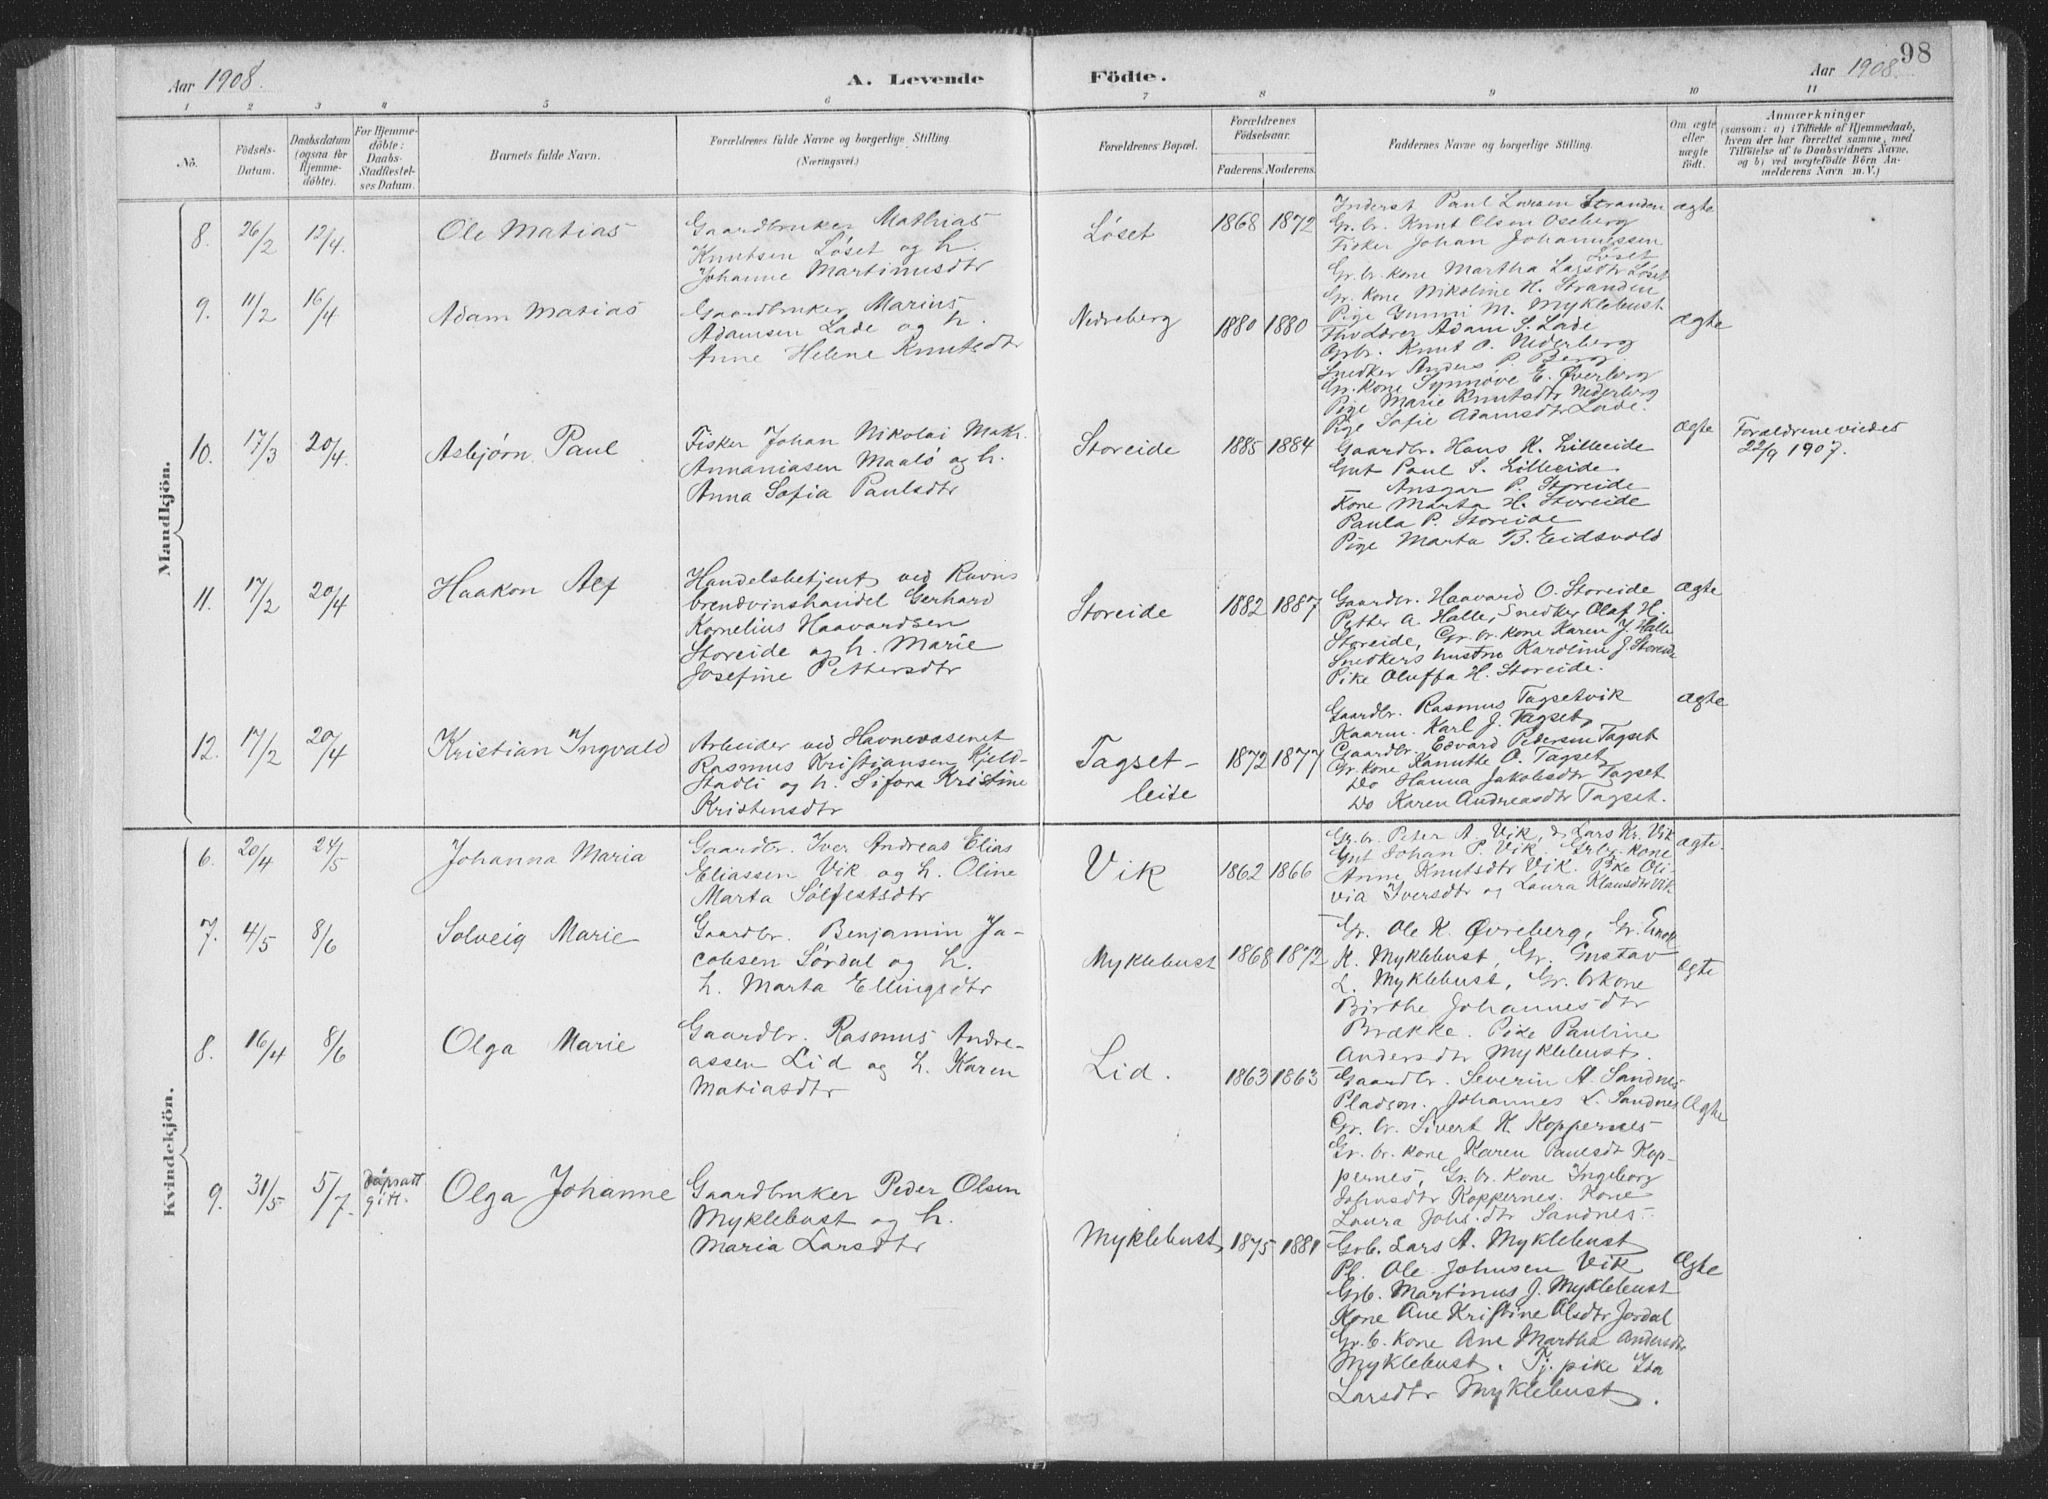 98
Aar 1908.
A. Levende
Födte.
Aar 1908.
1 2 3 4 5 6 7 8 9 10 11
No.
Födsels-
Datum.
Daabsdatum
(ogsaa for
Hjemme-
döbte).
For Hjemme-
döbte:
Daabs-
Stadfæstel-
ses Datum.
Barnets fulde Navn.
Forældrenes fulde Navne og borgerlige Stilling
(Næringsvei.)
Forældrenes Bopæl.
Forældrenes
Födselsaar.
Faderens. Moderens.
Faddernes Navne og borgerlige Stilling.
Om ægte
eller
uægte
født.
Anmærkninger
(saasom: a) i Tilfælde af Hjemmedaab,
hvem der har forrettet samme, med
Tilföielse af to Daabsvidners Navne,
og b) ved uægtefödte Börn An-
melderens Navn m. V.)
Mandkjön.
8. 26/2 12/4. Ole Matias
Gaardbruker Mathias
Knutsen Løset og h.
Johanne Martinusdtr
Løset 1868 1872
Inderst Paul Larsen Stranden
Gr. br. Knut Olsen Oseberg
Fisker Johan Johannessen
Løset
Gr. br. kone Martha Larsdtr Løset
Gr. Kone Nikoline H. Stranden
Pige Gunni M. Myklebust
ægte
9. 11/2 16/4 Adam Matias
Gaardbruker Marius
Adamsen Lade og h.
Anne Helene Knutsdtr
Nedreberg 1880 1880
Lærer Adam S. Lade
Grbr. Knut O. Nederberg
Snedker Anders P. Berg.
Gr. Kone Synnøve E. Øverberg
Pige Marie Knutsdtr Nederberg
Pige Sofie Adamsdtr Lade.
ægte
10. 17/3 20/4. Asbjørn Paul
Fisker Johan Nikolai Math.
Annaniasen Maalø og h.
Anna Sofia Paulsdtr
Storeide 1885 1884
Gaardbr. Hans K. Lilleeide
Gut Paul S. Lilleeide
— Ansgar P. Storeide
Kone Marta H. Storeide
Paula P. Storeide
Pige Marta B. Eidsvold
ægte
Forældrene viedes
22/9 1907.
11. 17/2 20/4 Haakon Alf
Handelsbetjent ved Ravns
brendvinshandel Gerhard
Kornelius Haavardsen
Storeide og h. Marie
Josefine Pettersdtr
Storeide 1882 1887
Gaardbr. Haavard O. Storeide
Petter A. Halle, Snedker Olaf H.
Storeide, Gr. br. kone Karen J. Halle
Snedkers hustru Karoline J. Storeide
Pike Oluffa H. Storeide.
Ægte
12. 17/2 20/4 Kristian Ingvald
Arbeider ved Havnevæsenet
Rasmus Kristiansen Kjeld-
stadli og h. Sifora Kristine
Kristensdtr
Tagset-
leite
1872 1877
Gaardbr. Rasmus Tagsetvik
Kaarm. Karl J. Tagset,
Gaardbr. Edvard Pedersen Tagset
Gr. kone Kanutte O. Tagset
Do Hanna Jakobsdtr Tagset
Do Karen Andreasdtr Tagset.
Ægte
Kvindekjön.
6. 20/4 24/5 Johanna Maria
Gaardbr. Iver Andreas Elias
Eliassen Vik og h. Oline
Marta Sølfestsdtr
Vik 1862 1866
Gr. br. Peter A. Vik, & Lars Kr. Vik
Gut Johan P. Vik. Gr. br. kone
Anne Knutsdtr Vik. Pike Oli-
via Iversdtr og Laura Klausdtr Vik
Ægte.
7. 4/5 8/6 Solveig Marie
Gaardbr. Benjamin Ja-
cobsen Sørdal og h.
h. Marta Ellingsdtr
Myklebust 1868 1872
Gr. Ole K. Øvreberg, Gr. Enok
K. Myklebust, Gr. Gustav
L. Myklebust, Gr. brkone
Birthe Johannesdtr
Brække. Pike Pauline
Andersdtr Myklebust.
Ægte
8. 16/4 8/6 Olga Marie
Gaardbr. Rasmus Andre-
assen Lid og h. Karen
Matiasdtr
Lid. 1863 1863
Gaardbr. Severin A. Sandnes
Pladsm. Johannes L. Sandnes
Gr. br. Sivert K. Koppernes
Gr. br. kone Karen Paulsdt Kop-
pernes, Gr. br. kone Ingeborg
Johnsdtr Koppernes. Kone
Laura Johs.dtr Sandnes.
Ægte
9. 31/5 5/7. Dåpsatt
gitt. Olga Johanne
Gaardbruker Peder Olsen
Myklebust og h.
Maria Larsdtr
Myklebust 1875 1881
Grb. Lars A. Myklebust
Pl. Ole Johnsen Vik
Grb. Martinus J. Myklebust
Kone Ane Kristine Olsdtr Jordal
Gr. b. Kone Ane Martha Andersdtr
Myklebust. Tj. pike Ida
Larsdtr Myklebust.
Ægte